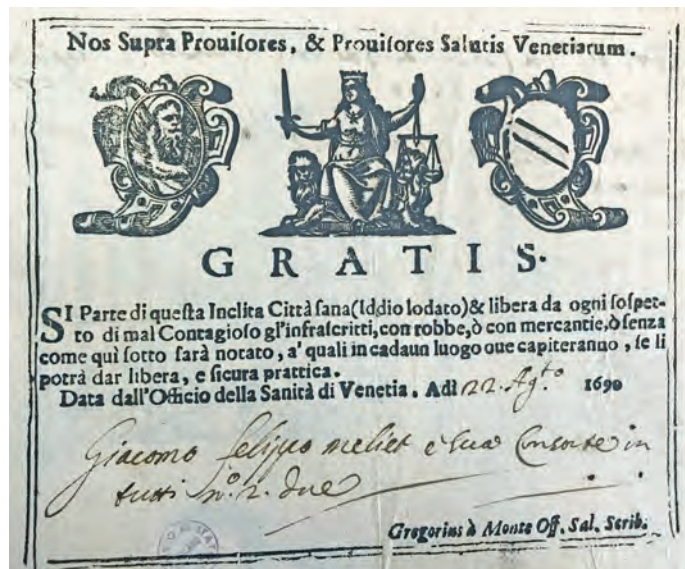 Nos Supra Prouiſores, & Prouiſores Salutis Venetiarum.
GRATIS.
SI Parte di queſta Inclita Città ſana (Iddio lodato) & libera da ogni ſoſpet-
to di mal Contagioſo gl'infraſcritti, con robbe, ò con mercantie, ò ſenza
come quì ſotto ſarà notato, a' quali in cadaun luogo oue capiteranno, ſe li
potrà dar libera, e ſicura prattica.
Data dall'Officio della Sanità di Venetia. Adì 22. Ag.to 1690
Giacomo felippo meliet e sua Consorte in
tutti n.o 2. due
Gregorius à Monte Off. Sal. Scrib.